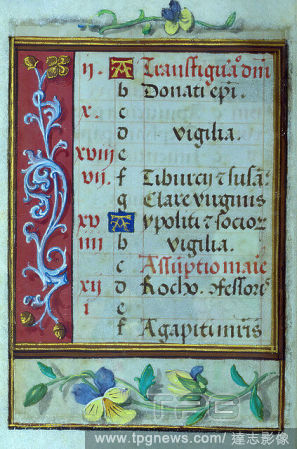 II. A Transfigura⁹ dñi
b Donati epi.
x. c
d vigilia.
xviii e
vii. f Tiburcij ⁊ susã.
g Clare virginis
xv A ypoliti ⁊ socioꝝ
iiii b vigilia.
c Assũptio marie
xii d Rochi. ↄfessoris
i e
f Agapiti mr̃is
TPG
www.tpgnews.com/ 達志影像